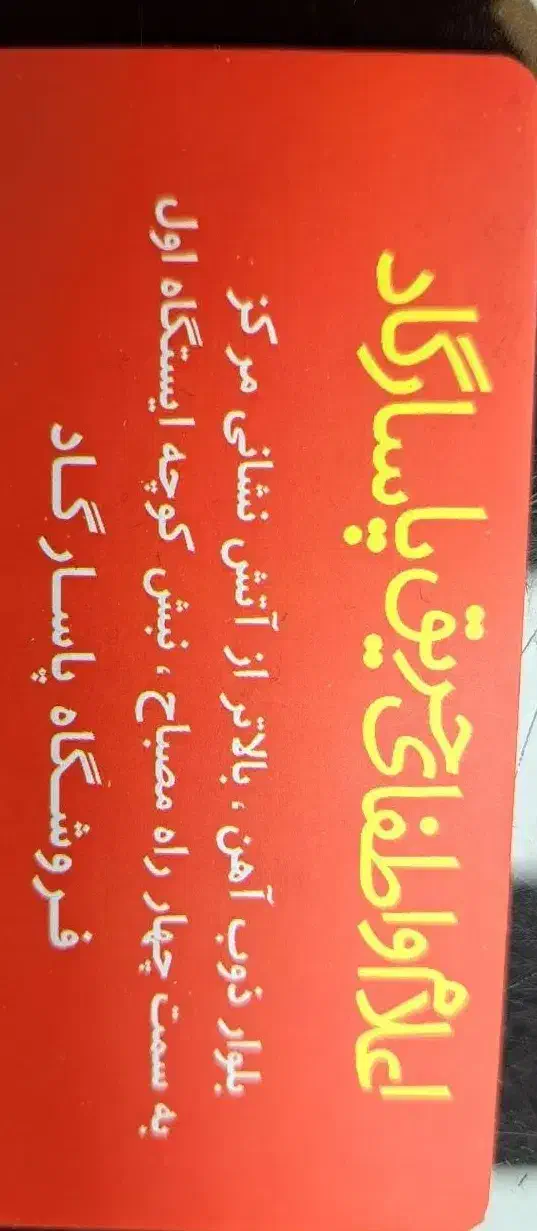 اعلام و اطفای حریق پاسارگاد
بلوار ذوب آهن ، بالاتر از آتش نشانی مرکز
به سمت چهار راه مصباح ، نبش کوچه ایستگاه اول
فروشگاه پاسارگاد